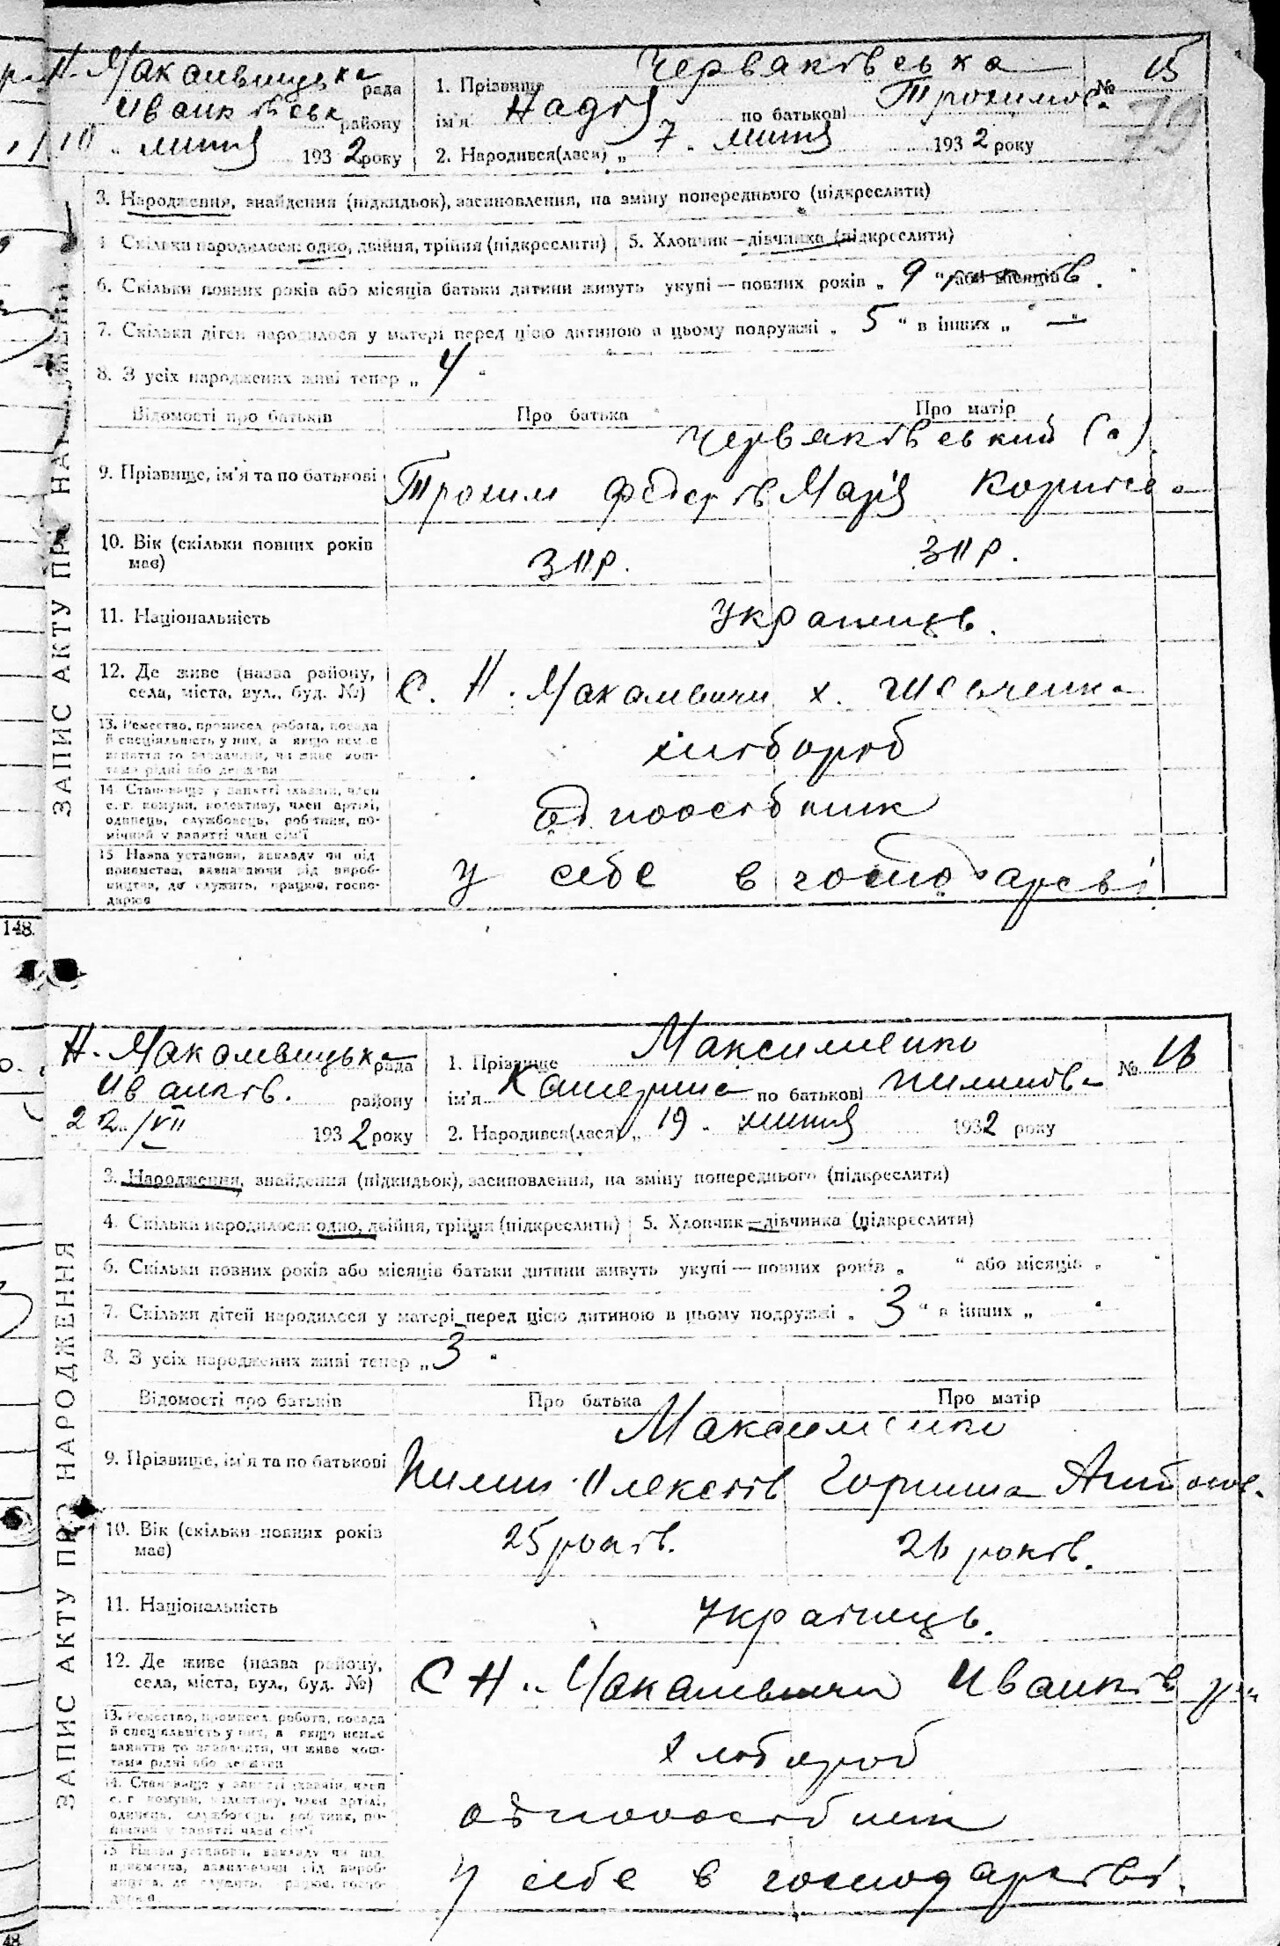 Н. Макалевицька рада
Иванківськ району
10 „ липня 1932 року
1. Прізвище Червяківська № 15
ім'я Надія по батькові Трохимов.
79
2. Народився(лася) „ 7 „ липня 1932 року
ЗАПИС АКТУ ПРО НАРОДЖЕННЯ
3. Народження, знайдення (підкидьок), засиновлення, на зміну попереднього (підкреслити)
4. Скільки народилося: одно, двійня, трійня (підкреслити) 5. Хлопчик—дівчинка (підкреслити)
6. Скільки повних років або місяців батьки дитини живуть укупі — повних років „ 9 “ або місяців
7. Скільки дітей народилося у матері перед цією дитиною в цьому подружжі „ 5 “ в інших „ — “
8. З усіх народжених живі тепер „ 4 “
Відомості про батьків Про батька Про матір
Червяківський (а)
9. Прізвище, ім'я та по батькові Трохим Федорів Марія
10. Вік (скільки повних років має)
11. Національність Украинець.
12. Де живе (назва району, С. Н. Макалевичи х. Шевченка
села, міста, вул., буд. №)
13. Ремество, промисел, робота, посада
й спеціяльність у них, а якщо немає хлібороб
заняття то зазначити, чи живе кош-
тами рідні або держави
14. Становище у занятті хазяїн, член
с.-г. комуни, колективу, член артілі, одноосібник
одинець, службовець, робітник, по-
мічний у занятті член сім'ї
15 Назва установи, закладу чи під-
приємства, вазначаючи рід вироб- у себе в господарсві
ництва, де служить, працює, госпо-
дарює
148.
Н. Макалевицька рада
Иванків. району
22/VII 1932 року
1. Прізвище Максименко № 16
ім'я Катерина по батькові Пилипова
2. Народився(лася) „ 19 „ липня 1932 року
ЗАПИС АКТУ ПРО НАРОДЖЕННЯ
3. Народження, знайдення (підкидьок), засиновлення, на зміну попереднього (підкреслити)
4. Скільки народилося: одно, двійня, трійня (підкреслити) 5. Хлопчик—дівчинка (підкреслити)
6. Скільки повних років або місяців батьки дитини живуть укупі — повних років „ “ або місяців „ “
7. Скільки дітей народилося у матері перед цією дитиною в цьому подружжі „ 3 “ в інших „ “
8. З усіх народжених живі тепер „ 3 “
Відомості про батьків Про батька Про матір
Максименко
9. Прізвище, ім'я та по батькові Пилип Олексіїв Горпина Антонов.
10. Вік (скільки повних років 25 років. 26 років.
має)
11. Національність Украінець.
12. Де живе (назва району, С Н. Макалевичи Иванків р-н
села, міста, вул., буд. №)
13. Ремество, промисел, робота, посада
й спеціяльність у них, а якщо немає хлібороб
заняття то зазначити, чи живе кош-
тами рідні або держави
14. Становище у занятті хазяїн, член
с.-г. комуни, колективу, член артілі, одноосібник
одинець, службовець, робітник, по-
мічний у занятті член сім'ї
15 Назва установи, закладу чи під-
приємства, вазначаючи рід вироб- у себе в господарстві.
ництва, де служить, працює, госпо-
дарює
48.